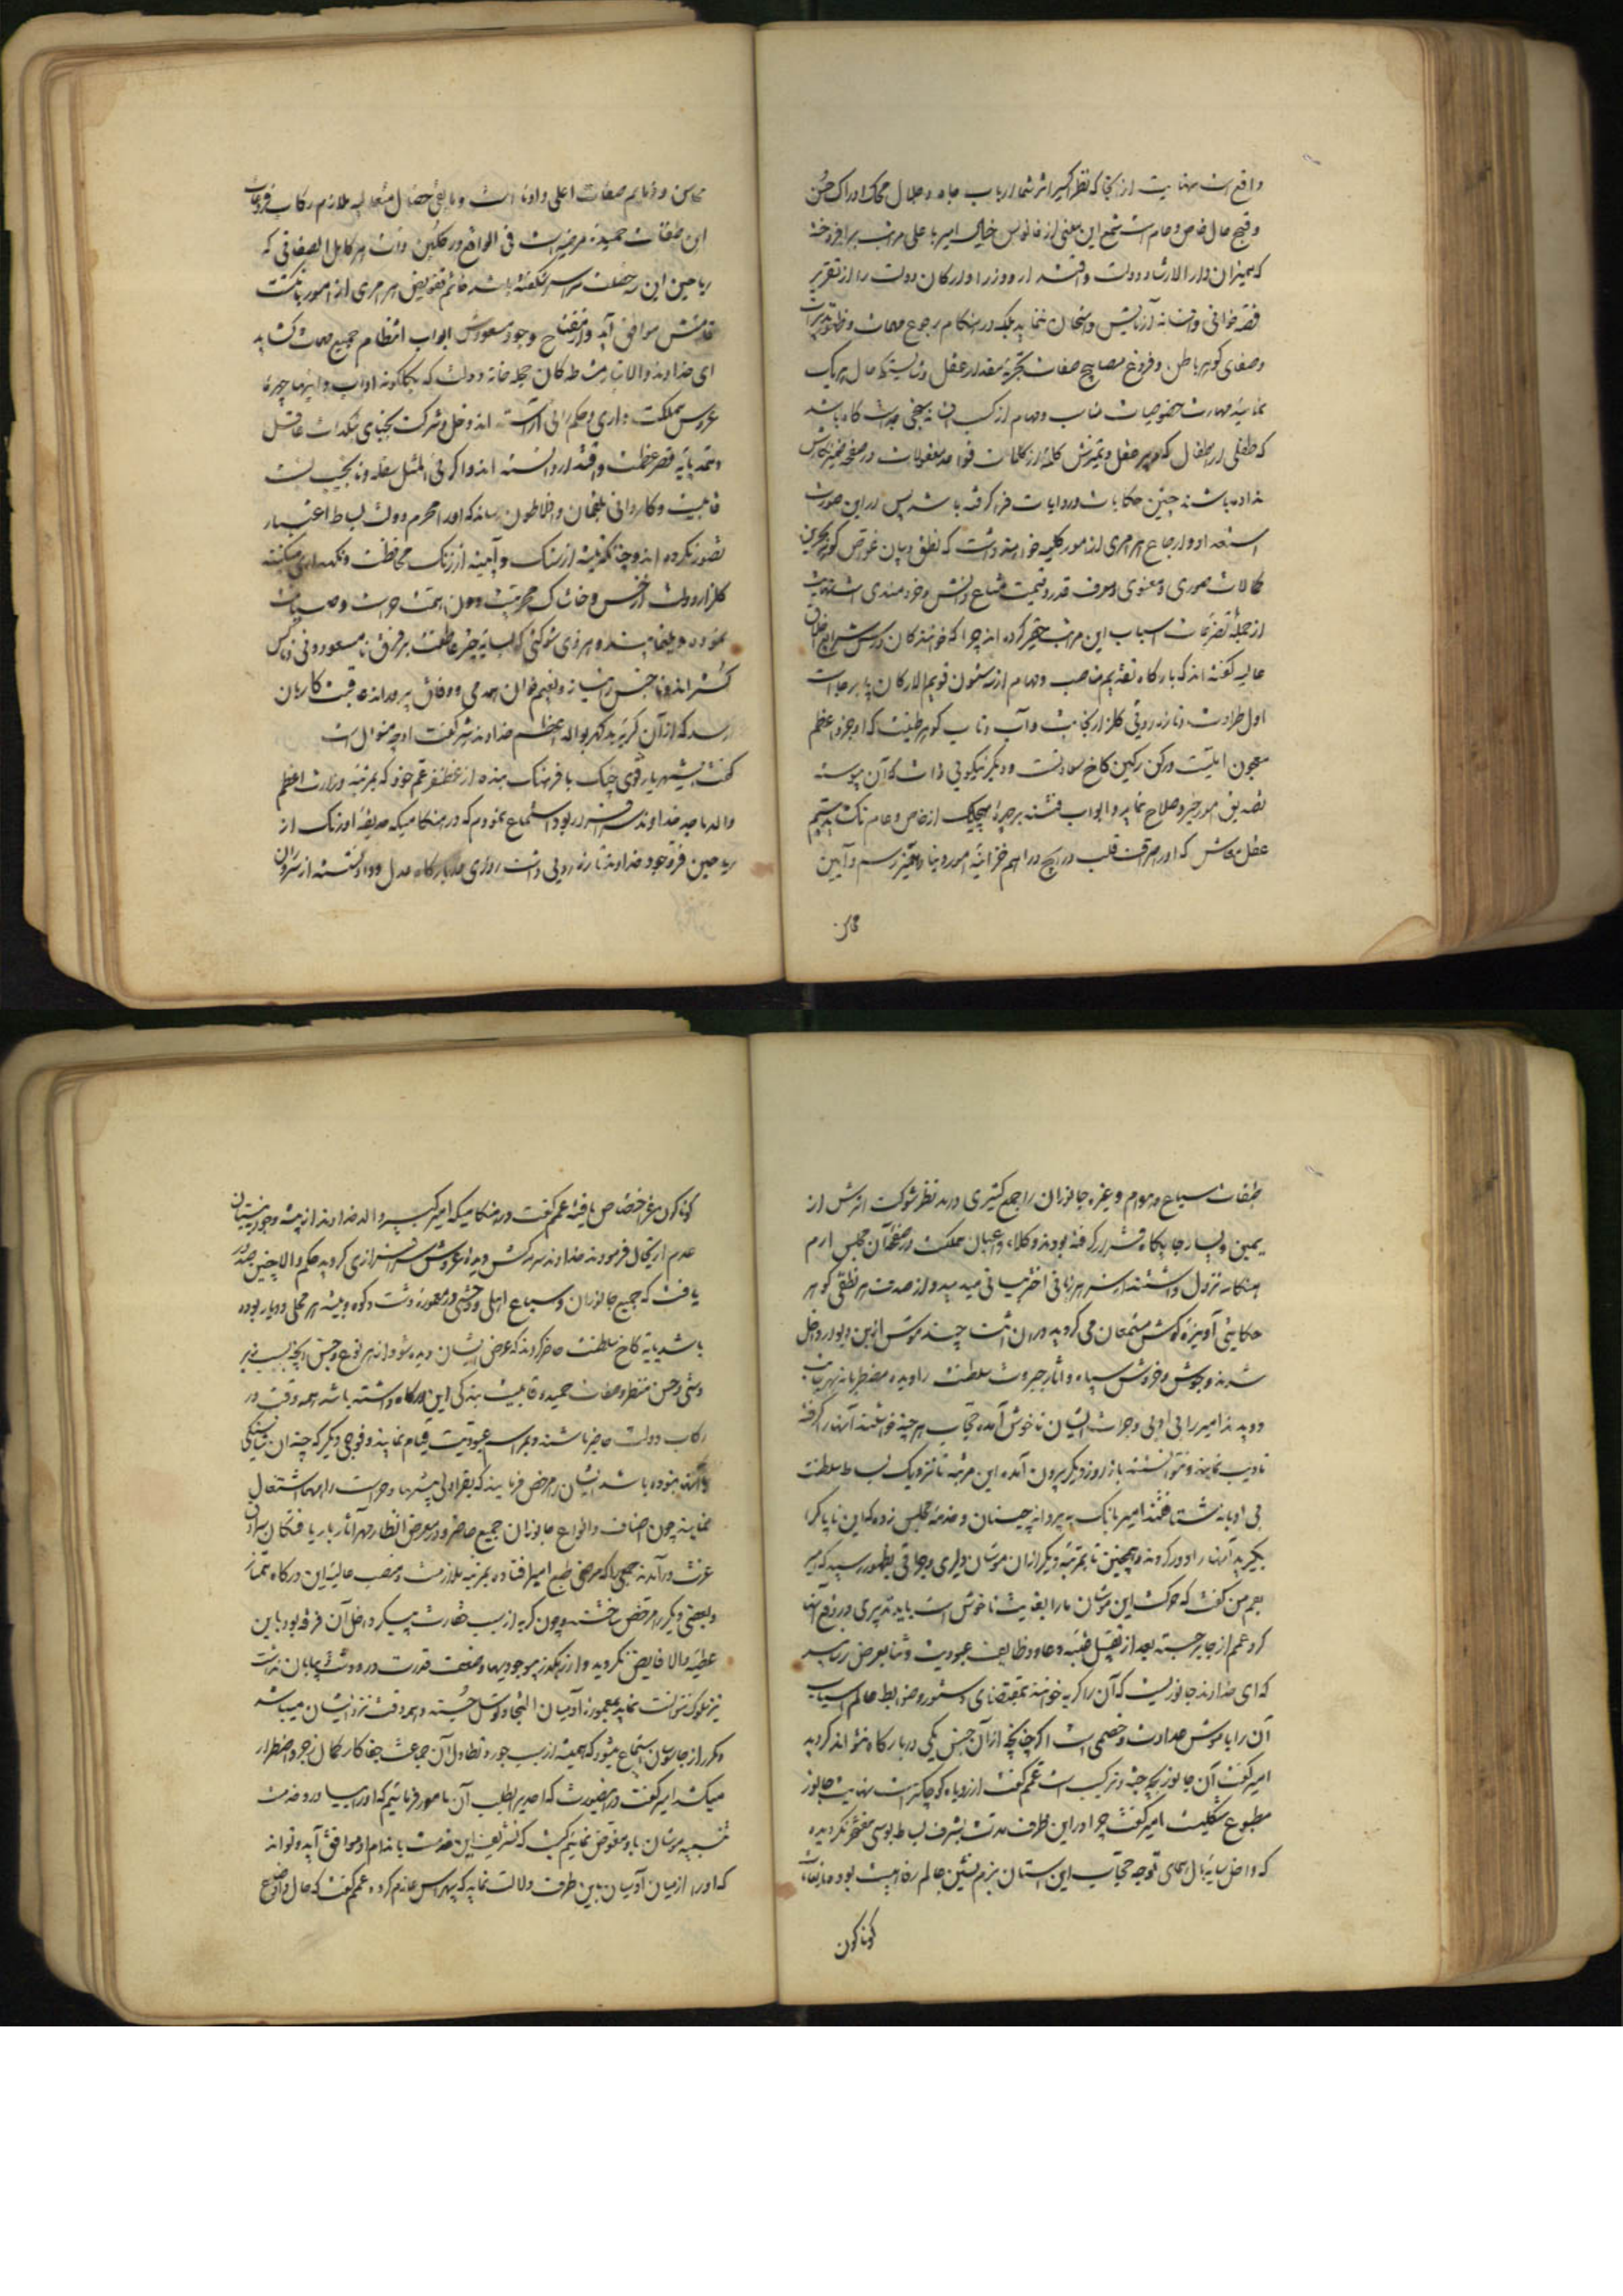 واقع است نهایت از آنجا که نظر اکسیر اثر شما ارباب جاه و جلال محک ادراک حسن
و قبح حال خاص و عام است شمع این معنی از فانوس خیال امیر با علی مراتب برافروخته
که همیزان دار الارشاد دولت و اقتدار و وزرا و ارکان دولت را از تقریر
قصه خوانی و افسانه آزمایش و امتحان ننماید بلکه در هنگام رجوع مهمات و ظهور تدبیرات
و صفای گوهر باطن و فروغ مصابیح صفات تجربه مقدار عقل و شایستگی حال هر یک
نمایند مهارت خصوصیات مناسب و مهام از کسب
که طفلی از اطفال که دبیر عقل و تمیزش کلمه از کلمات قواعد معقولات در صفحه ضمیر نگارش
نداده باشند چنین حکایات و روایات فرا گرفته باشد پس در این صورت
استعداد و ارجاع هر امری از امور کلیه خواهند داشت که نطق و بیان غواص گوهر بحرین
کمالات صوری و معنوی و معرف قدر و قیمت متاع دانش و خردمندی است نهایت
از جمله اسباب این مراتب چرا که
عالیه گفته اند که بارگاه تقدیم مناصب و مهام از سه ستون قویم الارکان پا بر جاست
اول طراوت و تازه روئی گلزار نجابت و آب و تاب گوهر طینت که او جزو اعظم
معجون اهلیت و رکن رکین کاخ سعادت و دیگر نیکوئی ذات که آن پیوسته
تصدیق امور خیر و صلاح نماید و ابواب فتنه بر چهره هیچیک از خاص و عام نگشاید سیم
عقل معاش که او صراف قلب و رایج دراهم خزاین امور دنیا و ممیز رسم و آیین
محاسن
محاسن و ذمایم صفات اعلی و ادنا است و مابقی خصال متعدله ملازم رکاب
این صفات حمیده مرضیه است فی الواقع در ذات هر کامل الصفاتی که
ریاحین این سه خصلت سراسر شگفته باشد خاتم تفویض هر امری از امور با انگشت
قامتش موافق آید و از مفتاح وجود مسعودش ابواب انتظام جمیع مهمات گشاید
ای خداوند والاتبار مشاطه گان حجله خانه دولت که بگلگونه آداب و چهره
عروس مملکت داری و حکم رانی آراسته اند دخل و شرکت
و تعدیایه قصر عظمت و اقتدار دانسته اند و اگر فی المثل سفله و نانجیب نسب
قابلیت و کاردانی بلقمان و افلاطون رساند که او را محرم دولت بساط اعتبار
تصور نکرده اند و شیشه از سنگ و آیینه از زنگ محافظت و نگهداری میکنند
گلزار دولت از خس و خاشاک دون همت حراست و صیانت
نموده و هر ذی شوکتی که سایه چتر عاطفت بر فرق نامسعود دونی ناکس
گسترانیده با جنس و نعیم خوان همدمی و وفاق پرورانده عاقبت کار بآن
رسد که از آن گربه بد گهر بوالد اعظم خداوند شیر گفت او چه منوال است
گفت ای شهریار قوی چنگ با فرهنگ بنده از غضنفر عم خود که بمرتبه وزارت اعظم
والد ماجد خداوند سرافراز بود استماع نمودم که در هنگامیکه حدیقه اورنگ از
ریاحین فر وجود خداوند تازه روئی داشت روزی در بارگاه عدل و داد نشسته از سروران
طبقات سباع و هوام و غیره جانوران را جمع کثیری در مد نظر شوکت اثرش از
یمین و یسار جایگاه قرار گرفته بودند و وکلاء و اعیان مملکت در صحن آن مجلس ارم
هنگامه نزول داشتند از سر هر زبانی اختر بیانی میدمید و از صدف هر نطقی گوهر
حکایتی آویزه گوش مستمعان می گردید در آن اثنا چند موش از بن دیوار داخل
شدند و جوش و خروش سپاه و آثار جبروت سلطنت را دیده مضطربانه بهر جانب
دویدند امیر را بی ادبی و جرأت ایشان ناخوش آمده حجاب هر چند خواستند آنها را گرفته
تادیب نمایند نتوانستند باز روز دیگر بیرون آمده این مرتبه تا نزدیک بساط سلطنت
بی ادبانه شتافتند امیر بانگ به پروانه چیان و خدمه مجلس زده که این ناپاک را
بگیرید آنها را دور کردند و همچنین تا بمرتبه دیگر از آن موشان دلیری و بظهور رسید که امیر
بعم من گفت که حرکت این موشان ما را بغایت ناخوش است باید تدبیری در رفع آنها
کرد عمم از جا برجسته بعد از تقبیل عتبه و دعا و وظایف عبودیت و ثنا بعرض رسانید
که ای خداوند جانوریست که آن را گربه خوانند بمقتضای دستور و ضوابط عالم اسباب
آن را با موش عداوت و خصمی است اگر چنانچه از آن جنس یکی در بارگاه
امیر گفت آن جانور بچه جثه و ترکیب است عمم گفت از روباه کوچکتر است نهایت جانور
مطبوع شکلیست امیر گفت چرا در این ظرف مدت بشرف بساط بوسی مفتخر نگردیده
که داخل سایه بال همای توجه حجاب این آستان بزم نشین عالم رفاهیت بود
گوناگون
گوناگون عز اختصاص یافته عمم گفت در هنگامیکه امیر کبیر والد خداوند از بیشه وجود به نیستان
عدم ارتحال فرمودند خداوند عروش سرافرازی گردید حکم والا چنین صدور
یافت که جمیع جانوران و سباع اهلی و وحشی در معموره دشت و کوه و بیشه هر محلی و دیار بوده
باشد بپایه کاخ سلطنت حاضر گردند که عرض ایشان دیده شود از هر نوع و جنس آنچه
و حسن منظر و صفات حمیده قابلیت بندگی این درگاه داشته باشد همه وقت در
رکاب دولت حاضر باشند و بمراسم عبودیت قیام نمایند و فوجی دیگر که چندان شایستگی
نداشته بوده باشد ایشان را مرخص فرمایند که بقراولی بیشها و حراست راهها اشتغال
نمایند چون اصناف و انواع جانوران جمیع حاضر و در معرض انظار مهر آثار باریافتگان سرادق
عزت درآمدند جمعی را که مرضی طبع امیر افتاده بمرتبه ملازمت و منصب عالیه این درگاه ممتاز
و بعضی دیگر را مرخص ساختند و چون گربه از سبب حقارت پیکر داخل آن فرقه بود باین
عطیه والا فایض نگردید و از رهگذر وجود بیها و ضعف قدرت در و دشت و بیابان نداشت
نیز سلوک نتوانست نماید بمعموره آدمیان التجا و توسل جسته و همه وقت نزد ایشان میباشد
و مکرر از جاسوسان استماع میشود که همیشه از سبب جور و تطاول آن جماعت جفا کار کمال زجر و اضطرار
میکشد امیر گفت در این صورت که احدی را بطلب آن مامور فرمائیم که او را بیاورد و خدمت
تنبیه موشان باو مفوض نمائیم کیست که تشریف این خدمت باندام او موافق آید و تواند
که او را از میان آدمیان باین طرف دلالت نماید که بهراس عازم گردد عمم گفت که حال و اوضاع